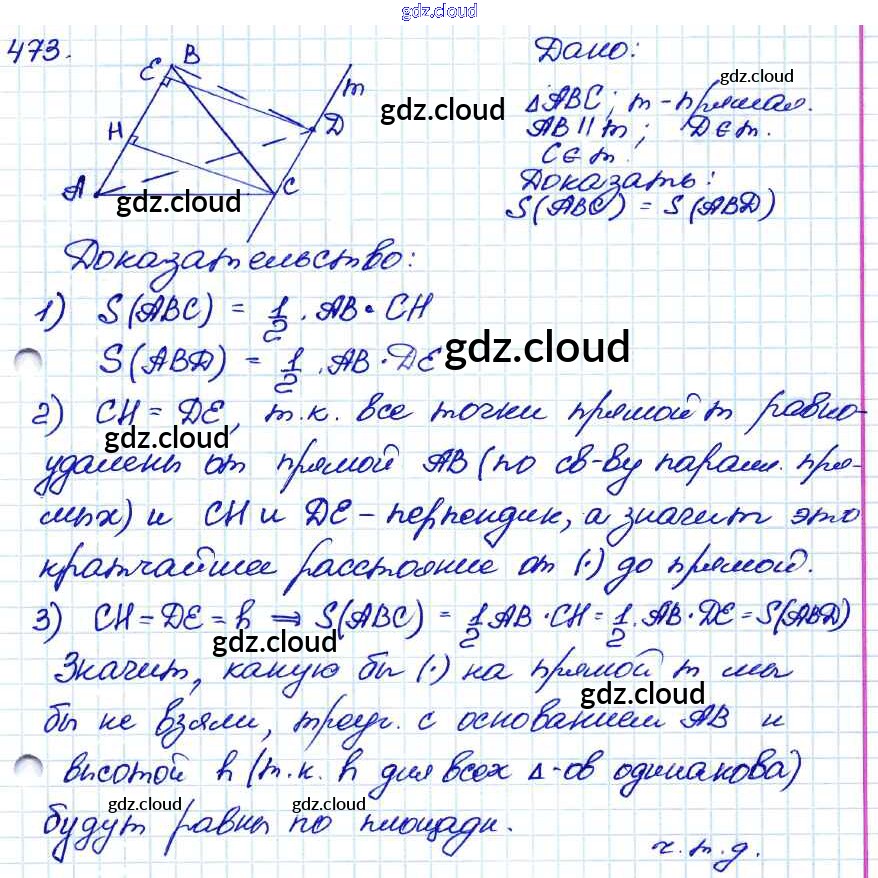 gdz.cloud
473.
Дано:
ΔABC; m - прямая.
AB || m; D∈m.
C∈m.
Доказать:
S(ABC) = S(ABD)
E B
m
H
D
A
C
Доказательство:
1) S(ABC) = 1/2 · AB · CH
S(ABD) = 1/2 · AB · DE
2) CH = DE, т.к. все точки прямой m равно-
удалены от прямой AB (по св-ву паралл. пря-
мых) и CH и DE - перпендик, а значит это
кратчайшее расстояние от (·) до прямой.
3) CH = DE = h ⇒ S(ABC) = 1/2 AB · CH = 1/2 · AB · DE = S(ABD)
Значит, какую бы (·) на прямой m мы
бы не взяли, треуг. с основанием AB и
высотой h (т.к. h для всех Δ-ов одинакова)
будут равны по площади.
ч.т.д.
gdz.cloud
gdz.cloud
gdz.cloud
gdz.cloud
gdz.cloud
gdz.cloud
gdz.cloud
gdz.cloud
gdz.cloud